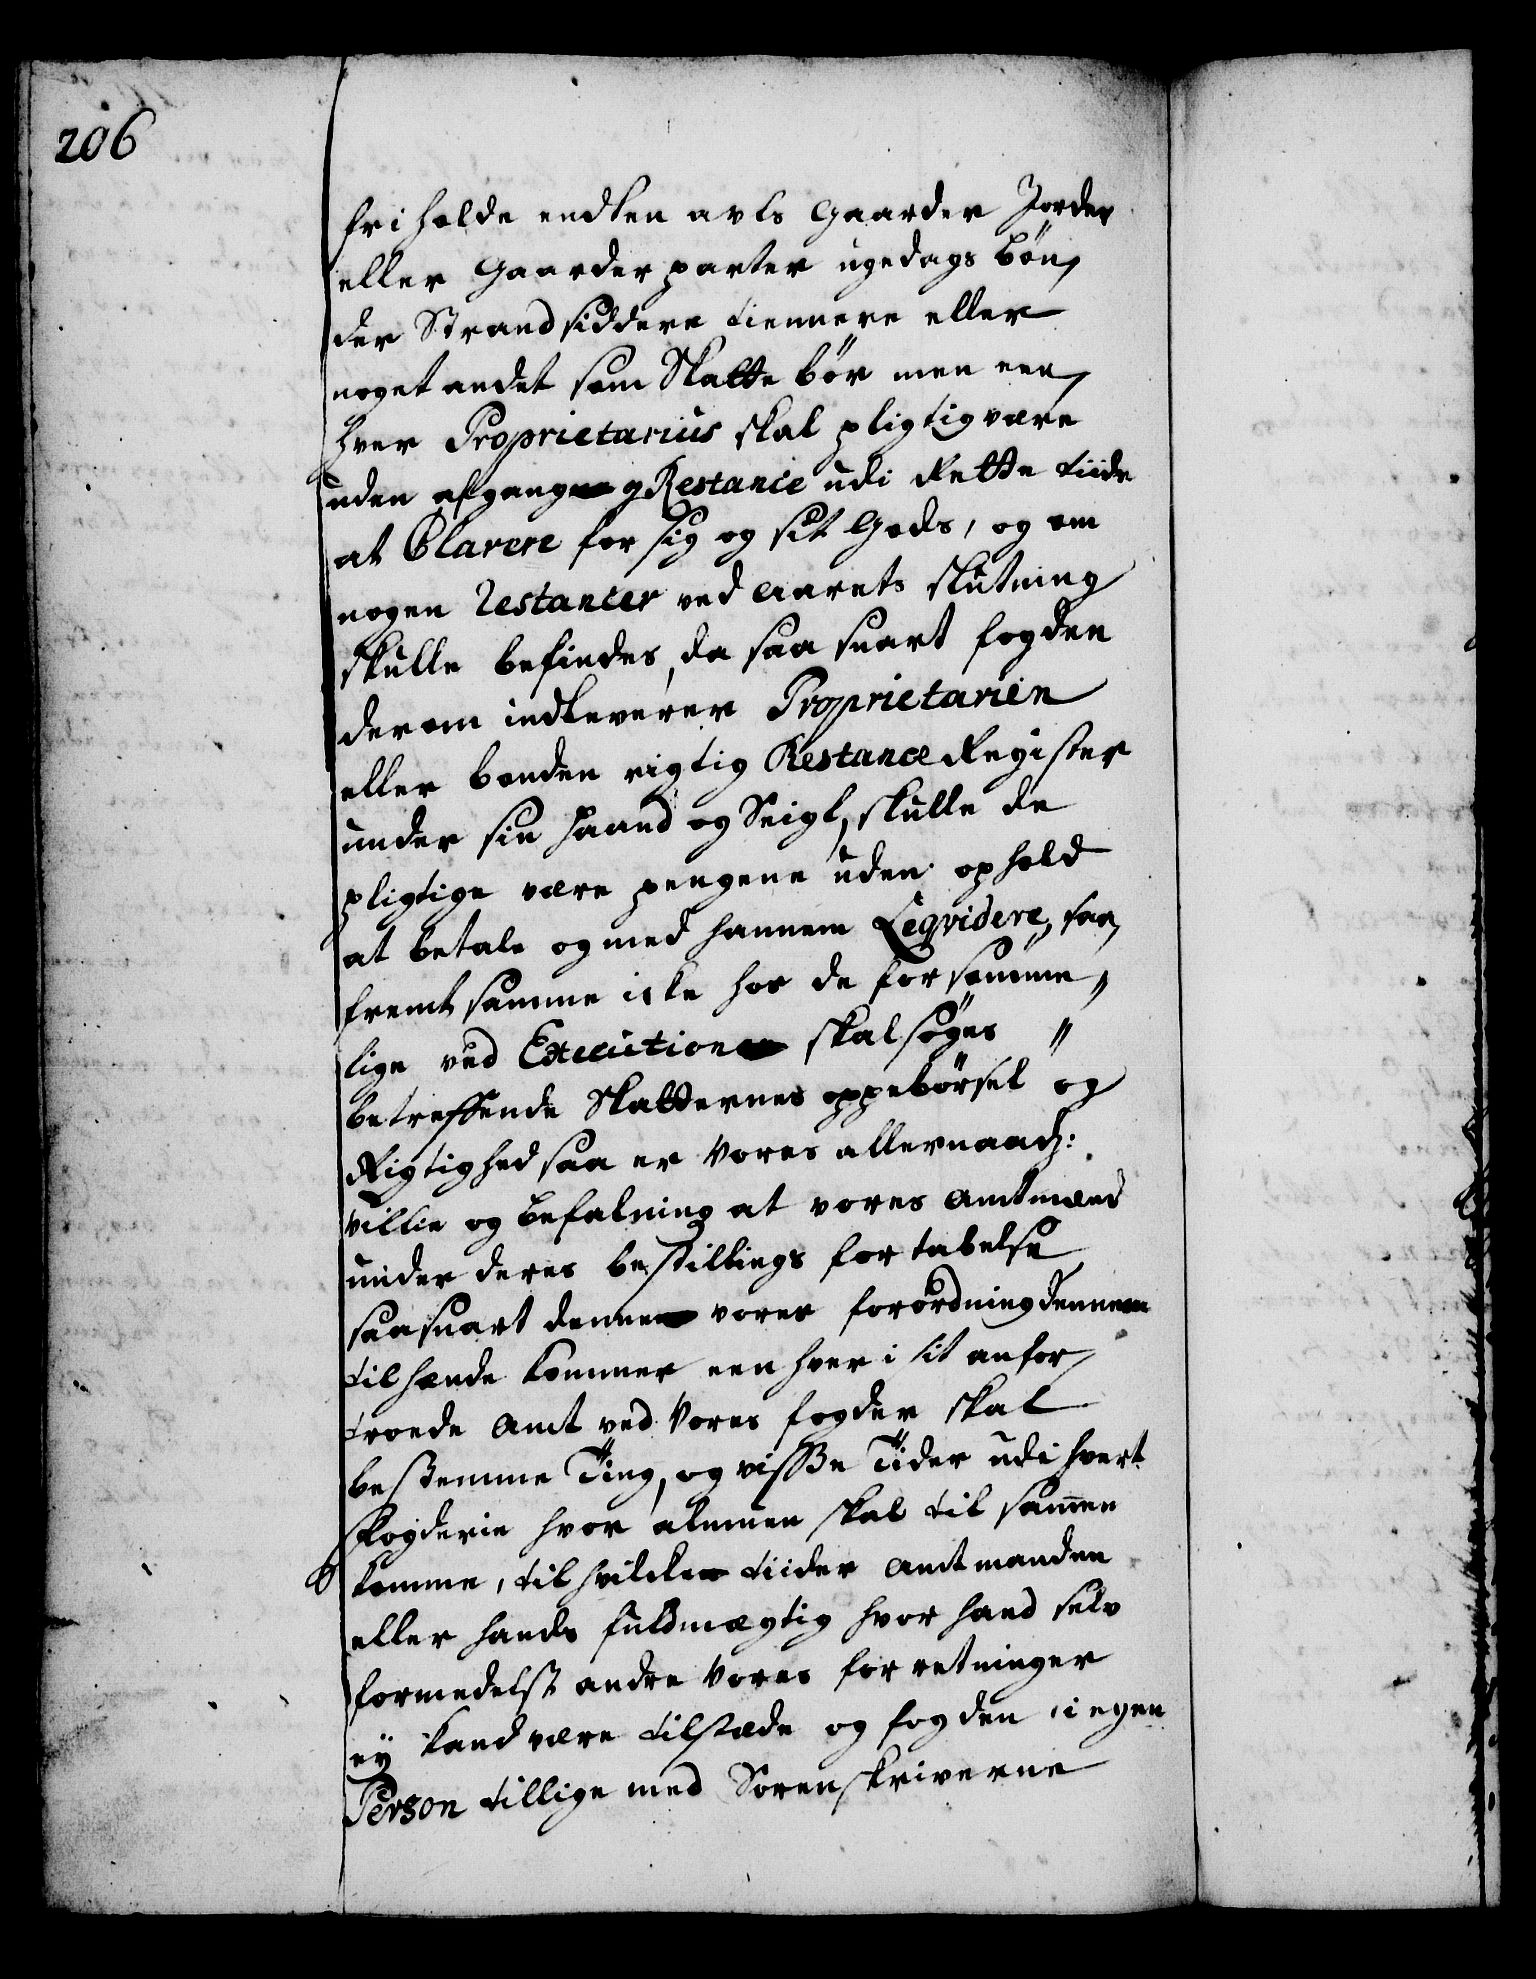 206
friholde endten avls Gaarder Jorder
eller Gaarder parter ugedags bön,
der Strandsiddere tiennere eller
noget andet som Skatte bör men een,
hver Proprietarius skal pligtig være
uden afgang og Restance udi Rette tiide
at Clarere for sig og sit Gods, og om
nogen Restancer ved Aarets slutning
skulle befindes, da saa snart fogden
derom indleverer Proprietarien
eller bonden rigtig Restance Register
under sin Haand og Seigl, skulle de
pligtige være pengene uden ophold
at betale og med hannem Leqvidere, saa,
fremt samme icke hos de forsömme,
lige ved Execution skal söges "
betreffende Skatternes oppebörsel og
Rigtighed saa er Vores allernaad:
villie og befalning at vores Amtmænd
under deres bestillings fortabelse
saasnart denne vores forordning dennem
til hænde kommer een hver i sit anfor,
troede Amt ved Vores fogder skal
bestemme Ting, og visse Tider udi hvert
fogderie hvor almuen skal til samen
komme, til hvilcke tiider Amtmanden
eller hands fuldmægtig hvor hand selv
formedelst andre Vores forretninger
ey kand være tilstæde og fogden i egen
Person tillige med Sorenskriverne